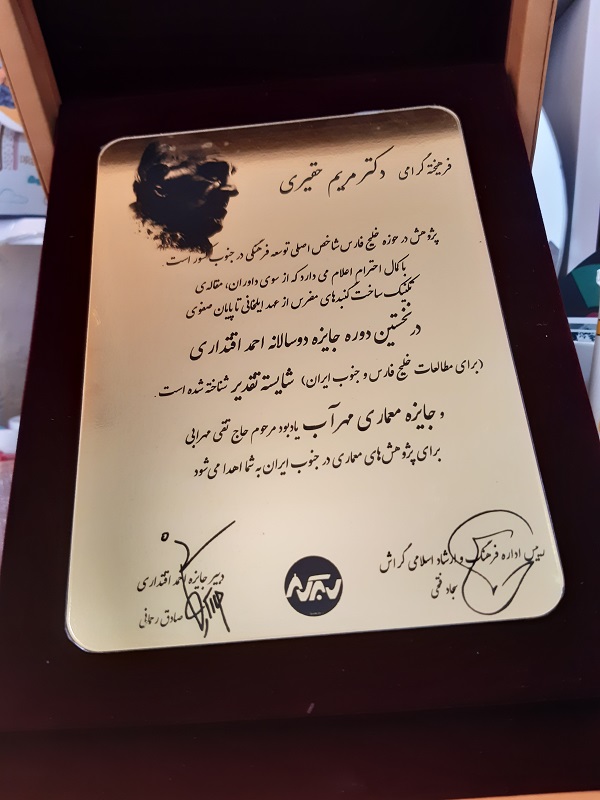 فرهیختهٔ گرامی دکتر مریم حقیری
پژوهش در حوزه خلیج فارس شاخص اصلی توسعه فرهنگی در جنوب کشور است
با کمال احترام اعلام می دارد که از سوی داوران، مقاله‌ی
تکنیک ساخت گنبدهای مقرنس از عهد ایلخانی تا پایان صفوی
در نخستین دوره جایزه دوسالانه احمد اقتداری
(برای مطالعات خلیج فارس و جنوب ایران) شایسته تقدیر شناخته شده است.
و جایزه معماری مهرآب یادبود مرحوم حاج تقی مهرابی
برای پژوهش‌های معماری در جنوب ایران به شما اهدا می‌شود
رییس اداره فرهنگ و ارشاد اسلامی گراش
سجاد فقی
دبیر جایزه احمد اقتداری
صادق رحمانی